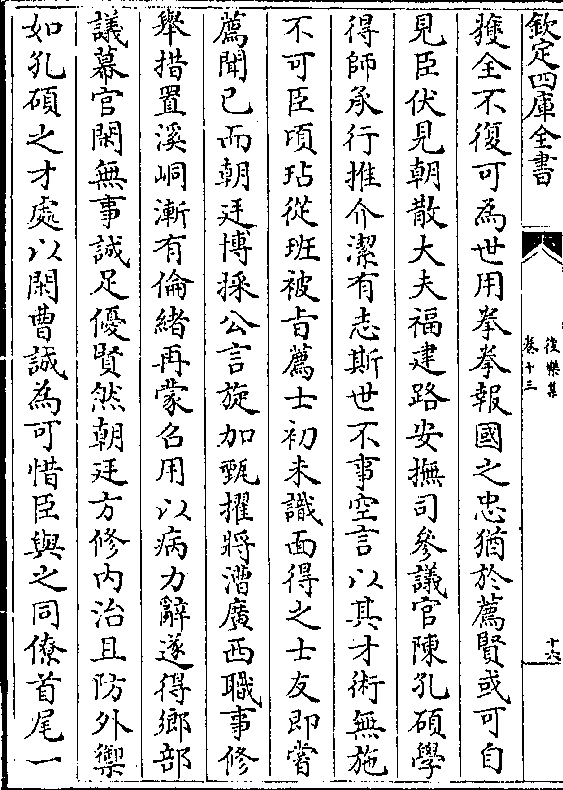 欽定四庫全書
後樂集
卷十三
十六
獲全不復可為世用拳拳報國之忠猶於薦賢或可自
見臣伏見朝散大夫福建路安撫司參議官陳孔碩學
得師承行推介潔有志斯世不事空言以其才術無施
不可臣頃玷從班被㫖薦士初未識面得之士友即嘗
薦聞已而朝廷博採公言旋加甄擢將漕廣西職事修
舉措置溪峒漸有倫緒再蒙召用以病力辭遂得鄉部
議幕官閑無事誠足優賢然朝廷方修内治且防外禦
如孔碩之才處以閑曹誠為可惜臣與之同僚首尾一